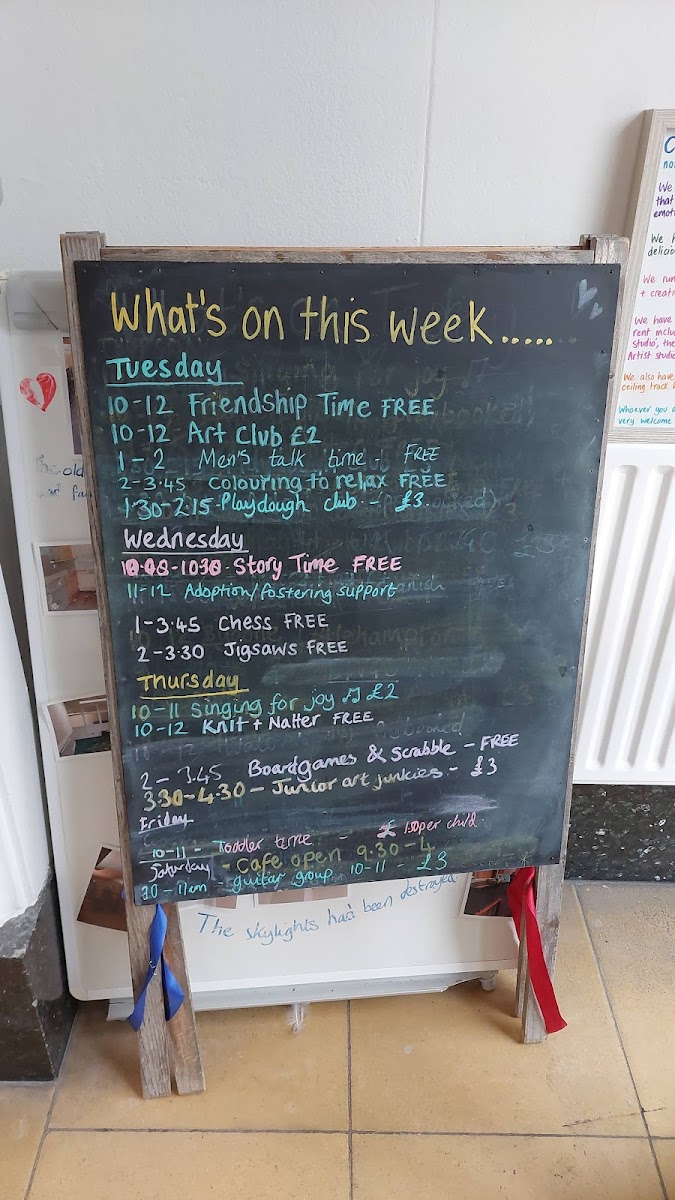 What's on this week.....
Tuesday
10-12 Friendship Time FREE
10-12 Art Club £2
1-2 Men's talk time - FREE
2-3.45 colouring to relax FREE
1.30-2.15 Playdough club - £3.
Wednesday
-1030 Story Time FREE
11-12 Adoption/fostering support
1-3.45 Chess FREE
2-3.30 Jigsaws FREE
Thursday
10-11 Singing for joy ♫ £2
10-12 Knit + Natter FREE
2-3.45 Boardgames & Scrabble - FREE
3.30-4.30 - Junior art junkies - £3
Friday
10-11 - Toddler time - £1.50 per child.
Saturday - Cafe open 9.30-4
10-11am - guitar group 10-11 - £3
The skylights had been destroyed
The old
C
no
We
that
emot
We h
delicio
We run
+ creati
We have
rent inclu
studio, the
Artist studio
We also have
ceiling track
Whoever you a
very welcome